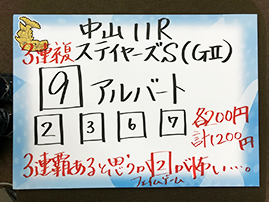 中山11R
3連複 ステイヤーズS(GII)
9 アルバート
2 3 6 7 各200円
計1200円
3連覇あると思うが2が怖い…。
フェイムゲーム